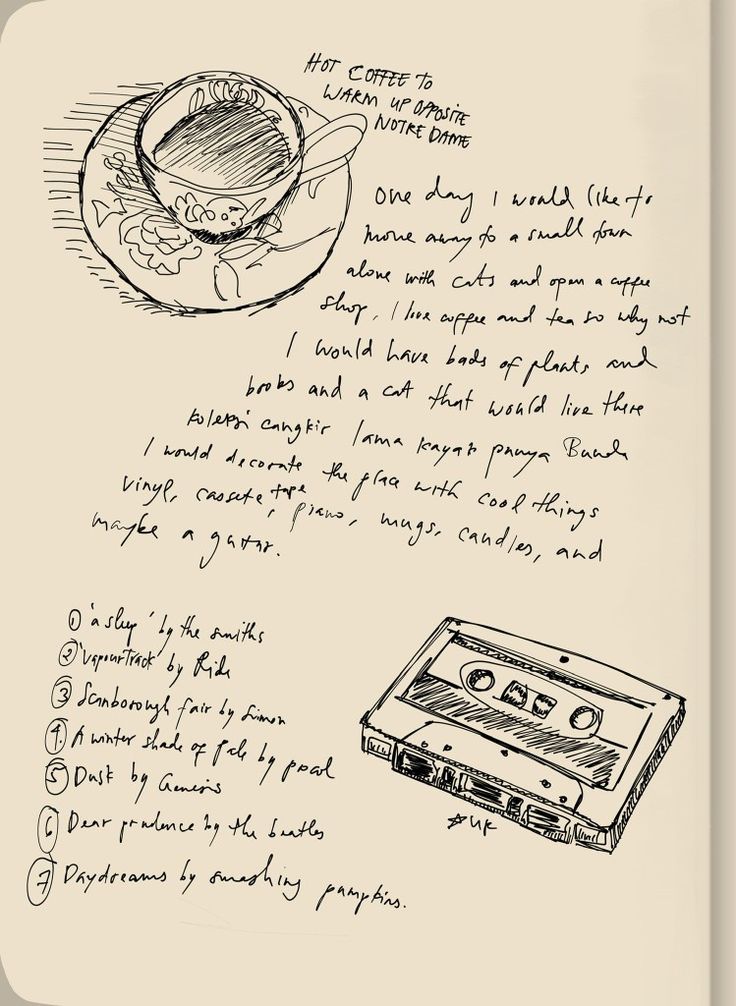 HOT COFFEE TO
WARM UP OPPOSITE
NOTRE DAME
One day I would like to
move away to a small town
alone with cats and open a coffee
shop, I love coffee and tea so why not
I would have bads of plants and
books and a cat that would live there
koleksi cangkir lama kayak punya Bunda
I would decorate the place with cool things
vinyl, cassete tape, piano, mugs, candles, and
maybe a guitar.
① 'asleep' by the smiths
② 'vapourTrack' by Ride
③ Scarborough fair by Simon
④ A winter shade of pale by procol
⑤ Dusk by Genesis
⑥ Dear prudence by the beatles
⑦ Daydreams by smashing pumpkins.